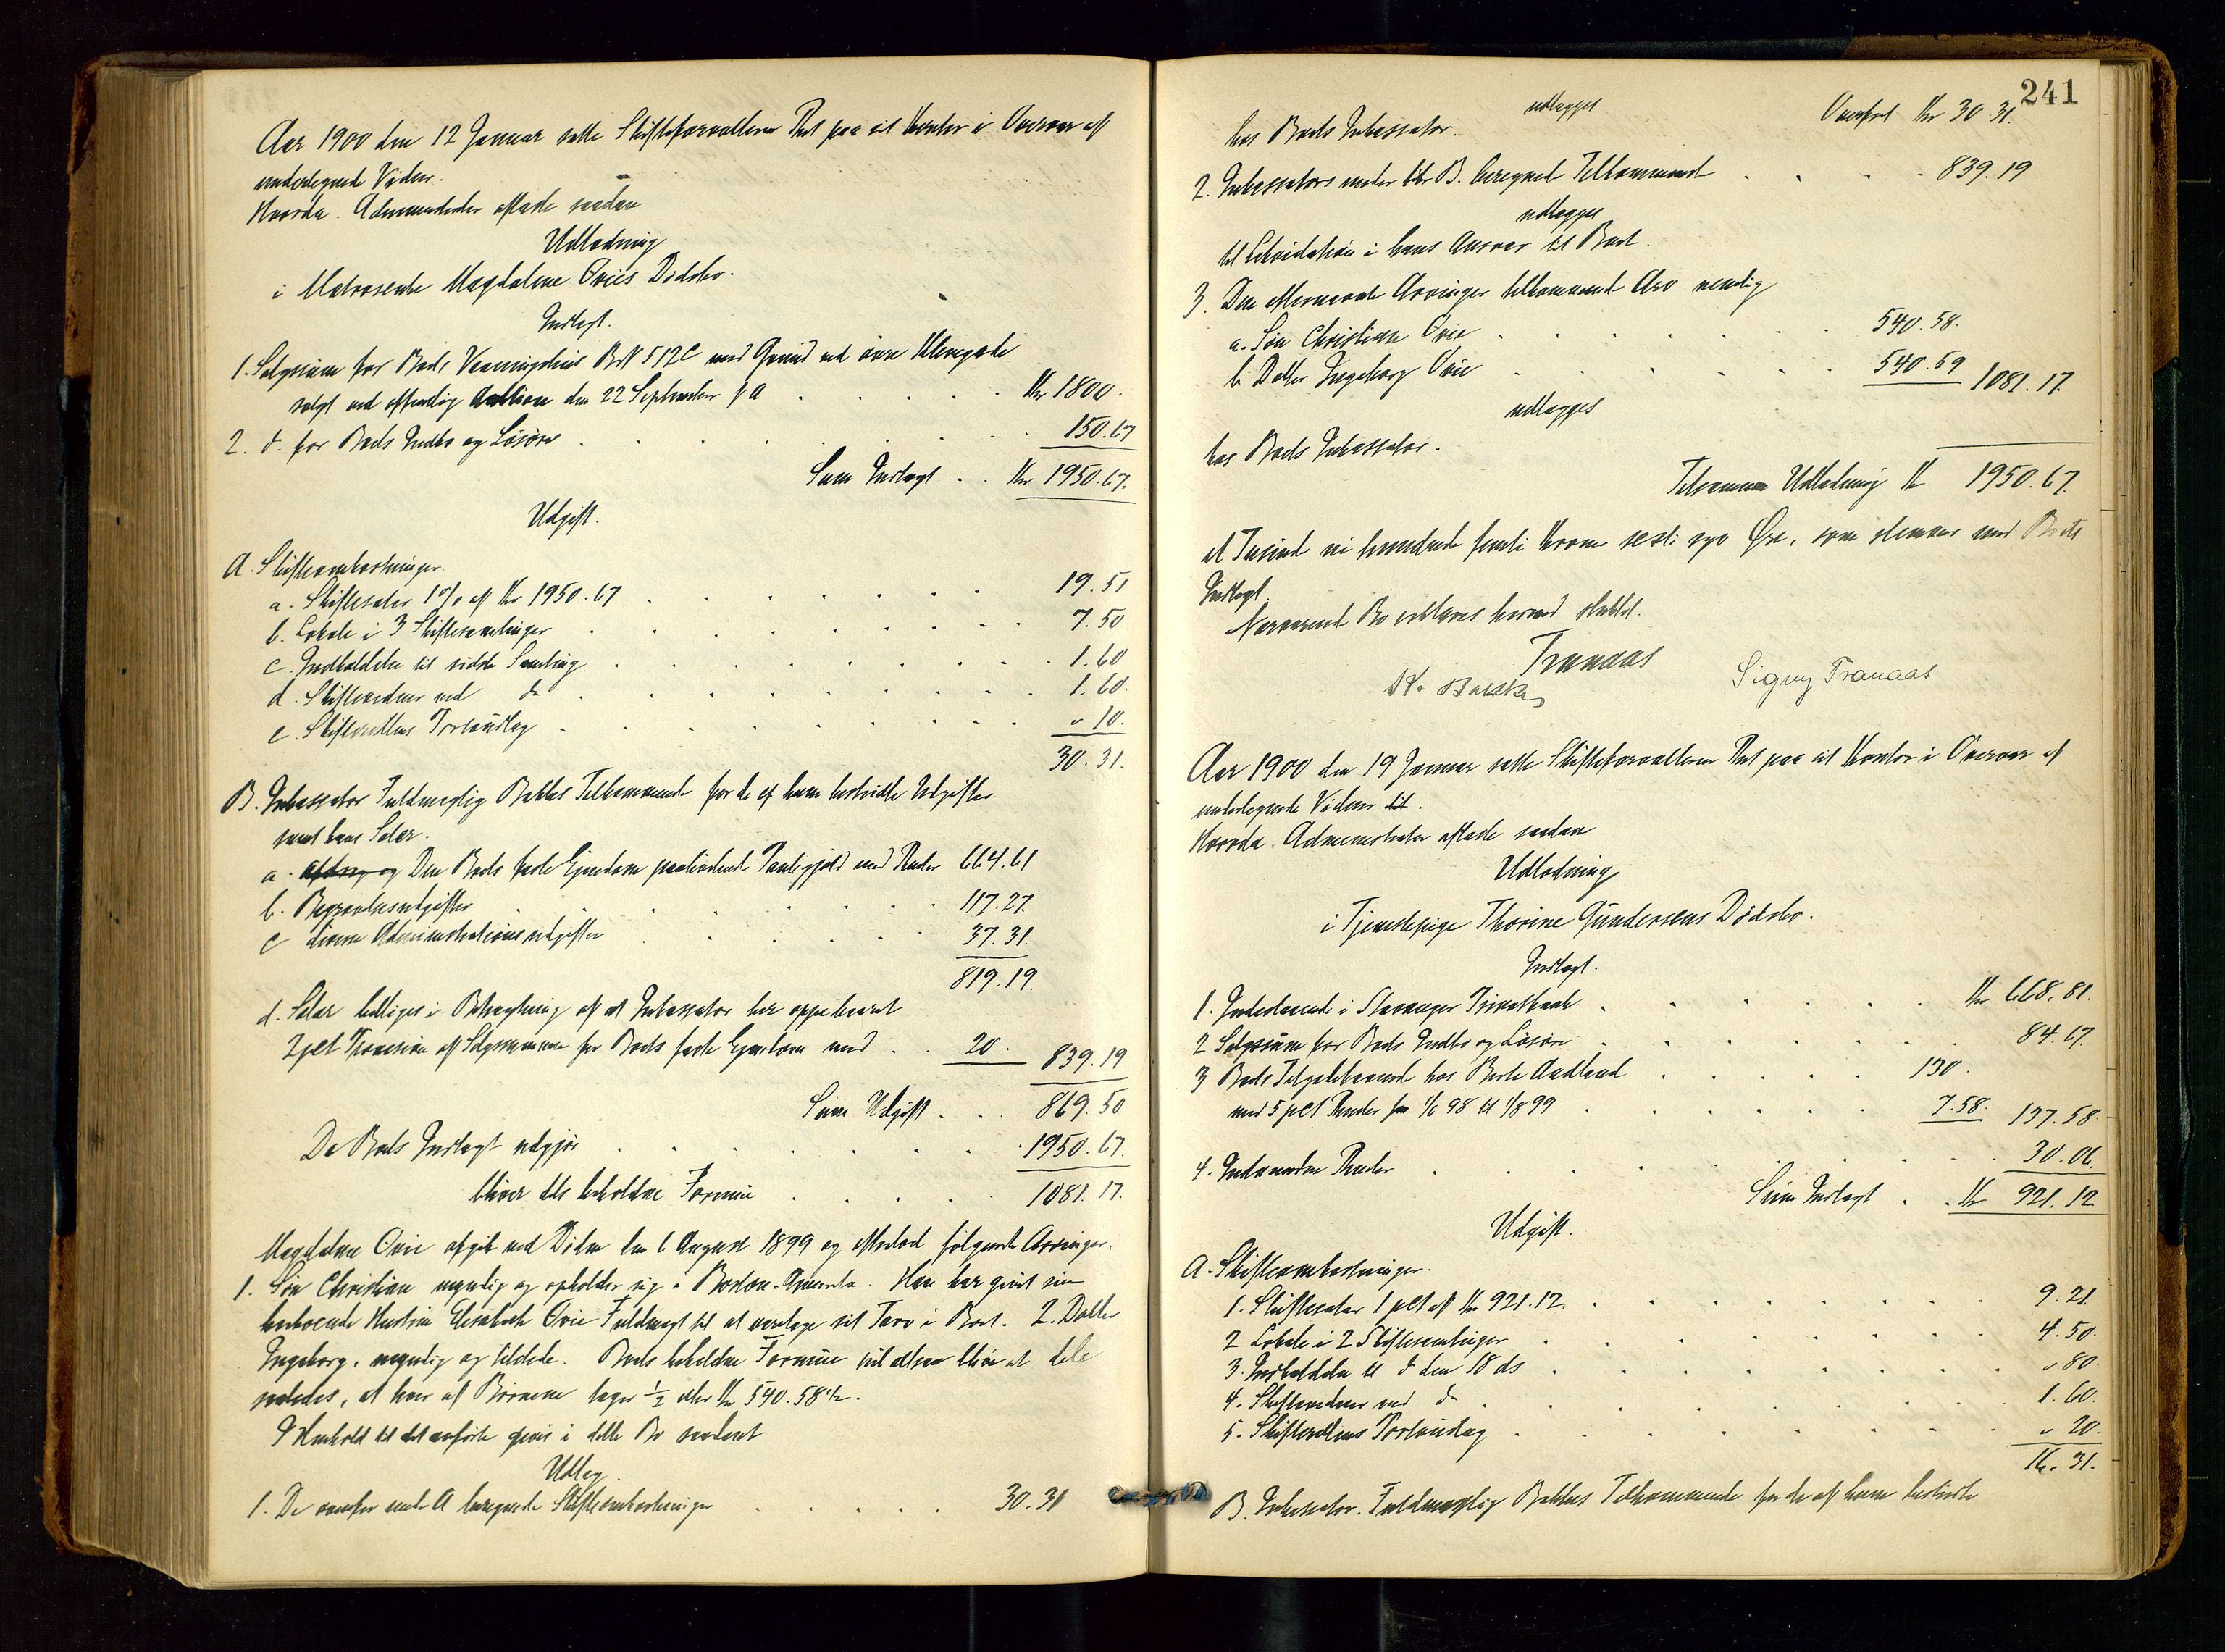 Aar 1900 den 12 Januar satte Skifteforvalteren Ret paa sit Kontor i Overvær af
undertegnede Vidner.
Hvorda. Administrator afsagde saadan
Udlodning
i Matrosenke Magdalene Ovies Dødsbo.
Indtægt.
1. Salgssum for Boets Vaaningshus BrN 512C med Grund ved øvre Klevegade
solgt ved offentlig Auktion den 22 September f A . . . . . Kr 1800.
2. do. for Boets Indbo og Løsøre . . . . . 150.67
Sum Indtægt . . Kr 1950.67.
Udgift.
A. Skifteomkostninger.
a. Skiftesalær 1% af Kr 1950.67 . . . . . 19.51
b. Lokale i 3 Skiftesamlinger . . . . . 7.50
c. Indkaldelse til sidste Samling . . . . . 1.60
d. Skiftevidner ved do . . . . . 1.60.
e. Skifterettens Portoudlæg . . . . . " 10.
30.31.
B. Inkassator Fuldmægtig Bakkes Tilkommende for de af ham bestridte Udgifter
samt hans Salær.
a. Den Boets faste Ejendom paahvilende Pantegjæld med Renter 664.61
b. Begravelsesudgifter . . . . . 117.27.
c diverse Administrationsudgifter . . . . . 37.31.
819.19.
d. Salær billiges i Betragtning af at Inkassator har oppebaaret
2pct Provision af Salgssummen for Boets faste Ejendom med . . 20. 839.19
Sum Udgift . . . 869.50
Da Boets Indtægt udgjør . . . . . 1950.67.
bliver dets beholdne Formue . . . . . 1081.17.
Magdalene Ovie afgik ved Døden den 6 August 1899 og efterlod følgende Arvinger.
1. Søn Christian myndig og opholder sig i Boston. Amerika. Han har givet sin
herboende Hustru Elisabeth Ovie Fuldmagt til at varetage sit Tarv i Boet. 2. Datter
Ingeborg, myndig og tilstede. Boets beholdne Formue vil altsaa blive at dele
saaledes, at hver af Børnene tager ½ eller Kr 540.58½.
I Henhold til det anførte gjøres i dette Bo saadant
Udlæg.
1. De ovenfor under A beregnede Skifteomkostninger . . . . . 30.31
241
udlægges Overført Kr 30.31.
hos Boets Inkassator.
2. Inkassators under B. beregnede Tilkommende . . . . 839.19
udlægges
til Likvidation i hans Ansvar til Boet.
3. Den efternævnte Arvinger tilkommende Arv nemlig
a. Søn Christian Ovie . . . . . 540.58.
b. Datter Ingeborg Ovie . . . . . 540.59 1081.17.
udlægges
hos Boets Inkassator.
Tilsammen Udlodning Kr 1950.67.
et Tusind ni hundrede femti Kroner sexti syv Øre, som stemmer med Boets
Indtægt.
Nærværende Bo erklæres hermed sluttet.
Tranaas
K. Bakke Signy Tranaas
Aar 1900 den 19 Januar satte Skifteforvalteren Ret paa sit Kontor i Overvær af
undertegnede Vidner.
Hvorda. Administrator afsagde saadan
Udlodning
i Tjenestepige Thorine Gundersens Dødsbo.
Indtægt.
1. Indestaaende i Stavanger Privatbank . . . . . Kr 668.81.
2 Salgssum for Boets Indbo og Løsøre . . . . . 84.67.
3 Boets Tilgodehavende hos Berte Aadland . . . . . 130.
med 5 pct Renter fra 1/6 98 til 1/8 99 . . . . . 7.58. 137.58.
4. Indvundne Renter . . . . . 30.06.
Sum Indtægt . . Kr 921.12
Udgift.
A. Skifteomkostninger.
1. Skiftesalær 1 pct af Kr 921.12. . . . . . 9.21
2 Lokale i 2 Skiftesamlinger . . . . . 4.50.
3. Indkaldelse til do den 18 ds . . . . . " 80.
4. Skiftevidner ved do . . . . . 1.60.
5. Skifterettens Portoudlæg . . . . . " 20.
16.31.
B. Inkassator. Fuldmægtig Bakkes Tilkommende for de af ham bestridte